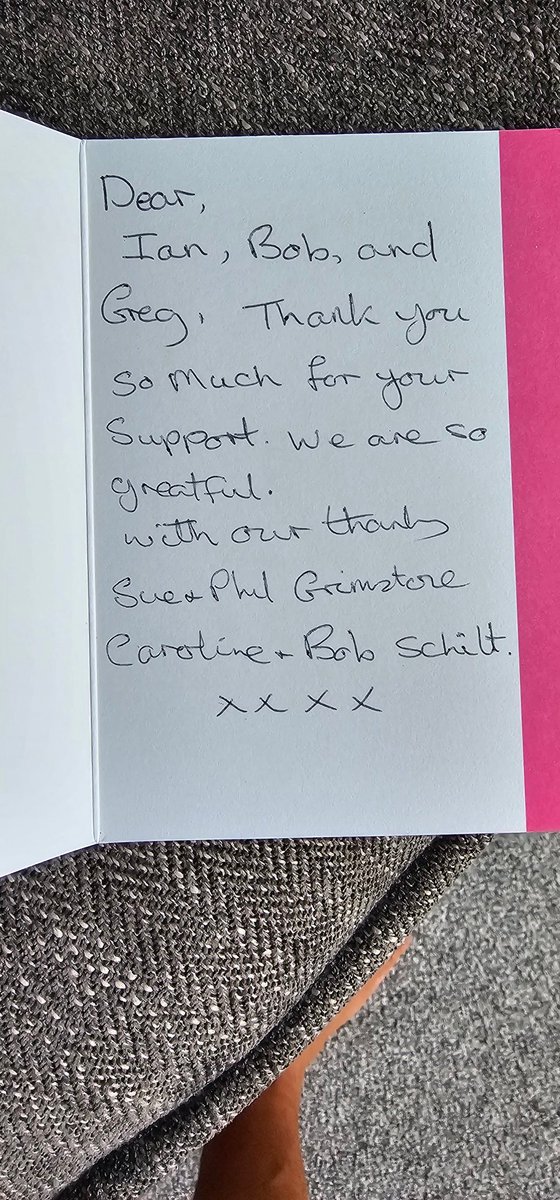 Dear,
Ian, Bob, and
Greg, Thank you
so much for your
Support. We are so
greatful.
with our thanks
Sue + Phil Grimstone
Caroline + Bob Schilt.
xx x x